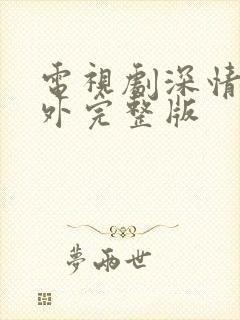 電視劇深情
外完整版
夢兩世